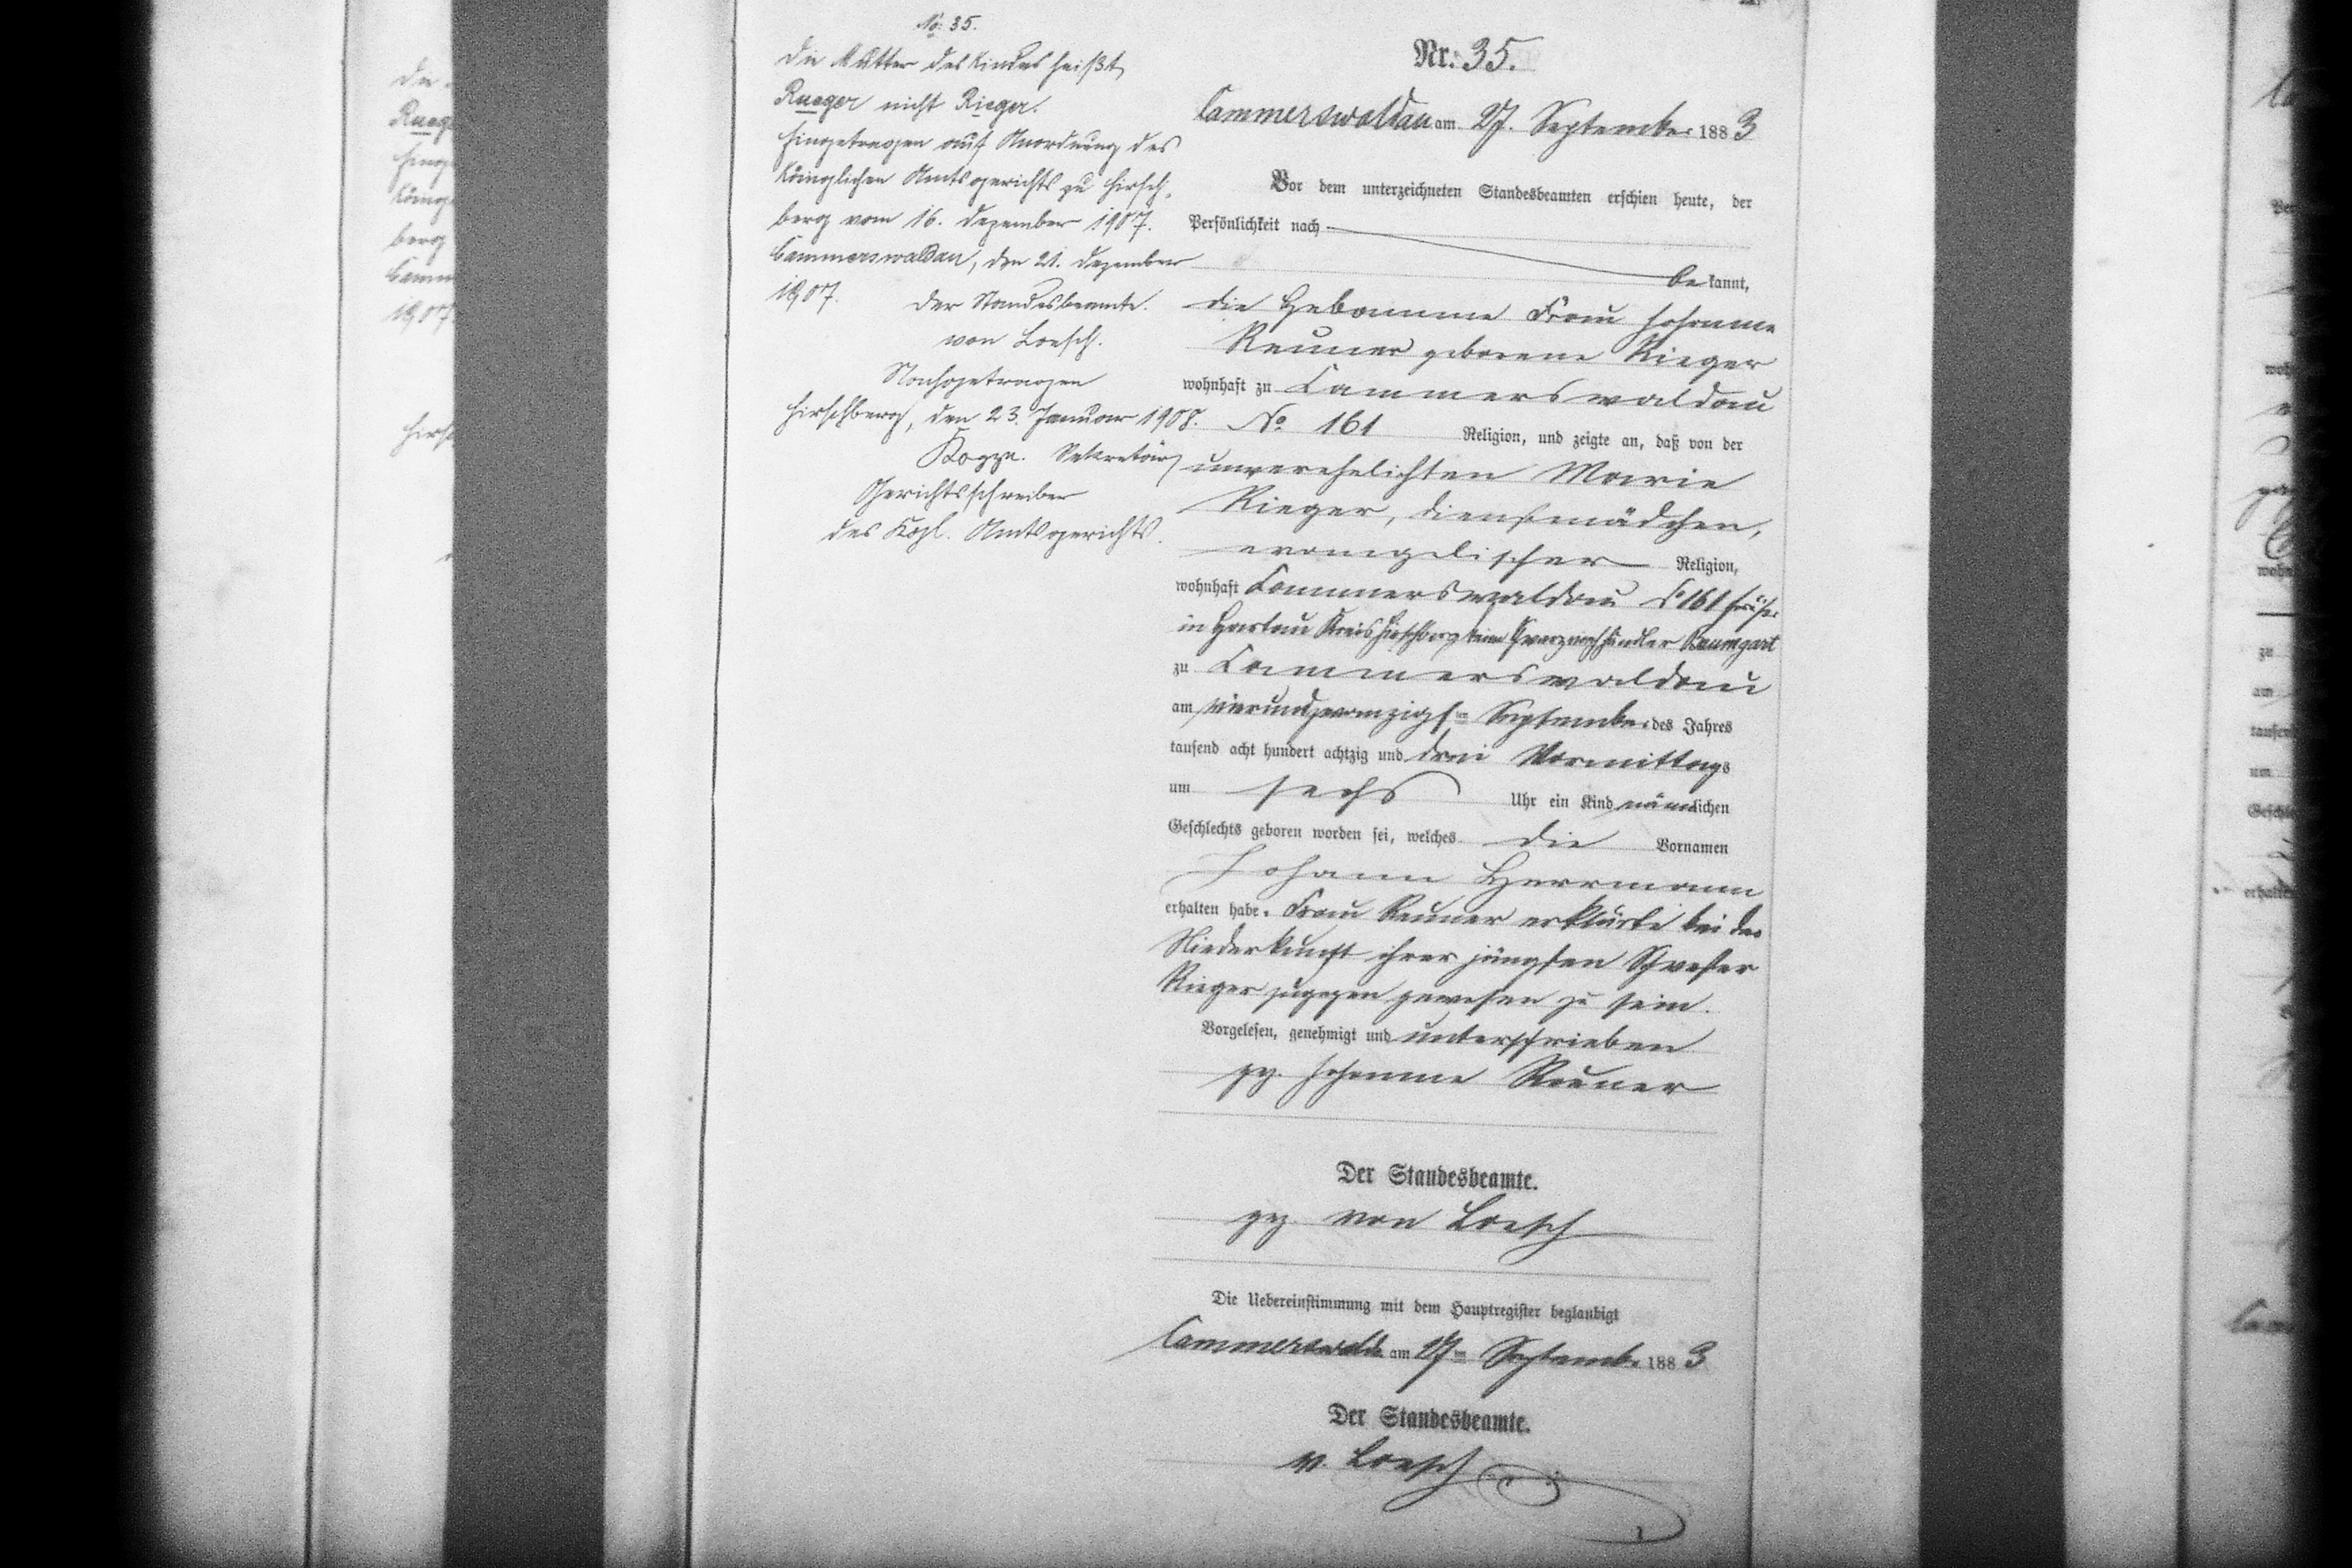 No: 35.
Die Mutter des Kindes heißt
Rueger nicht Rieger.
Eingetragen auf Anordnung des
Königlichen Amtsgerichts zu Hirsch-
berg vom 16. Dezember 1907.
Cammerswaldau, den 21. Dezember
1907. Der Standesbeamte.
von Loesch.
Nachgetragen
Hirschberg, den 23. Januar 1908.
Sekretär,
Gerichtsschreiber
des Kgl. Amtsgerichts.
Nr. 35.
Cammerswaldau am 27. September 1883
Vor dem unterzeichneten Standesbeamten erschien heute, der
Persönlichkeit nach
bekannt,
die Hebamme Frau Johanne
Reuner geborene Rieger
wohnhaft zu Cammerswaldau
No 161 Religion, und zeigte an, daß von der
unverehelichten Marie
Rieger, Dienstmädchen,
evangelischer Religion,
wohnhaft Cammerswaldau No 161 früher
in Hartau Kreis Hirschberg beim Baumgart
zu Cammerswaldau
am vierundzwanzigsten September des Jahres
tausend acht hundert achtzig und drei Vormittags
um sechs Uhr ein Kind männlichen
Geschlechts geboren worden sei, welches die Vornamen
Johann Herrmann
erhalten habe. Frau Reuner erklärte bei der
Niederkunft ihrer jüngsten Schwester
Rieger zugegen gewesen zu sein.
Vorgelesen, genehmigt und unterschrieben
gez. Johanne Reuner
Der Standesbeamte.
gez. von Loesch
Die Uebereinstimmung mit dem Hauptregister beglaubigt
Cammerswaldau am 27ten September 1883
Der Standesbeamte.
v. Loesch